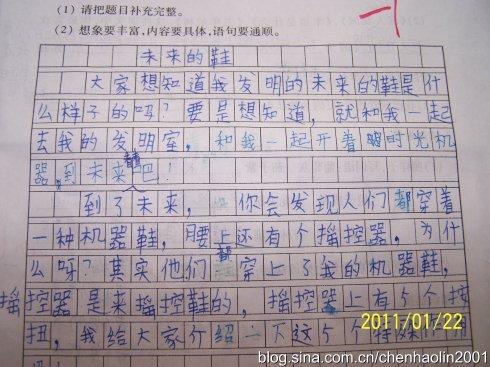 (1) 请把题目补充完整。
(2) 想象要丰富,内容要具体,语句要通顺。
未来的鞋
大家想知道我发明的未来的鞋是什
么样子的吗?要是想知道,就和我一起
去我的发明室,和我一起开着时光机
器,到未来看看吧!
到了未来,你会发现人们都穿着
一种机器鞋,腰上还有个摇控器,为什
么呀?其实他们都穿上了我的机器鞋,
摇控器是来摇控鞋的,摇控器上有5个按
扭,我给大家介绍一下这5个
2011/01/22
blog.sina.com.cn/chenhaolin2001